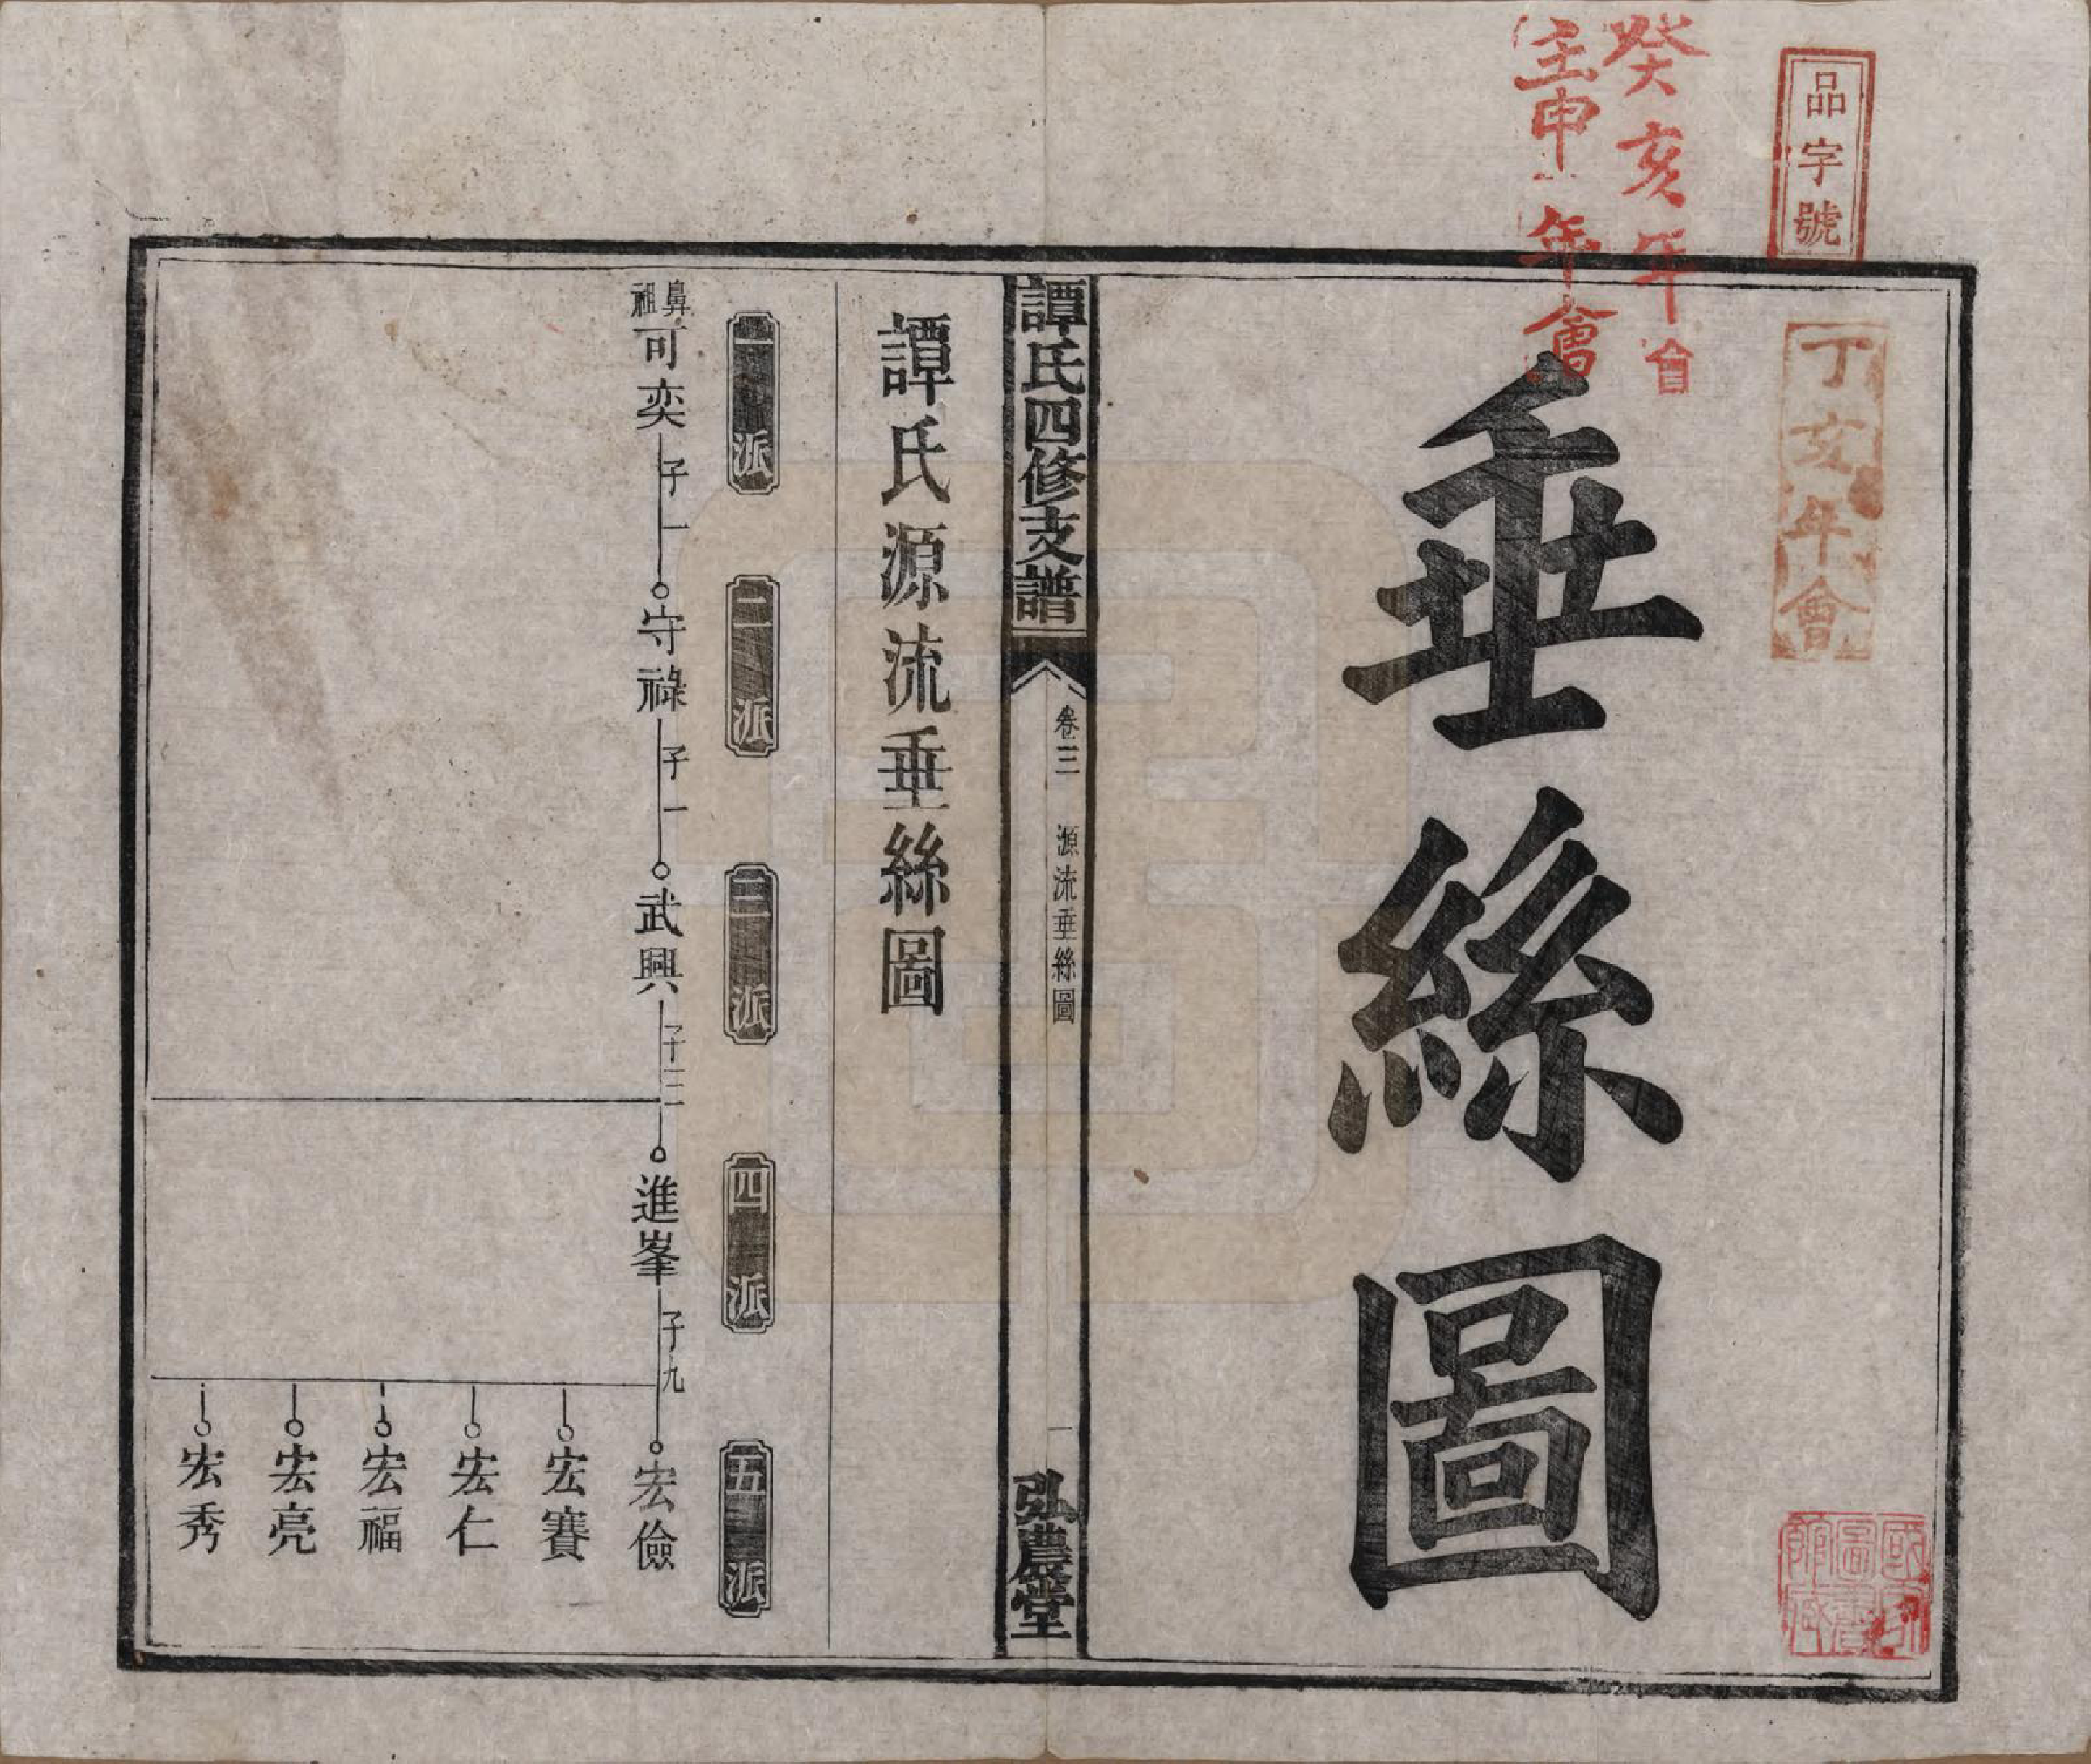 品字號
癸亥年會
壬申年會
丁亥年會
垂絲圖
國家圖書館藏
譚氏四修支譜
卷三 源流垂絲圖
一
弘農堂
譚氏源流垂絲圖
一派
二派
三派
四派
五派
鼻祖可奕 子一 守祿 子一 武興 子三 進峯 子九 宏儉
宏賽
宏仁
宏福
宏亮
宏秀